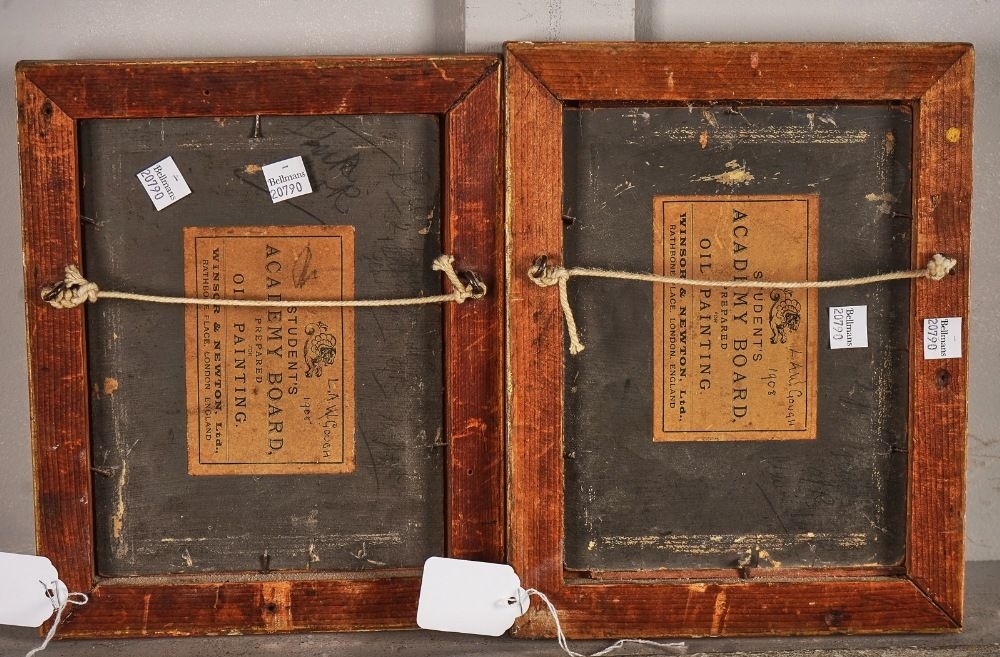 Bellmans
20790
Bellmans
20790
L.A.W. GOUGH
1908
STUDENT'S
ACADEMY BOARD,
PREPARED
FOR
OIL PAINTING.
WINSOR & NEWTON, Ltd.,
RATHBONE PLACE, LONDON, ENGLAND
L.A.W. GOUGH
1908
STUDENT'S
ACADEMY BOARD,
PREPARED
FOR
OIL PAINTING.
WINSOR & NEWTON, Ltd.,
RATHBONE PLACE, LONDON, ENGLAND
Bellmans
20790
Bellmans
20790